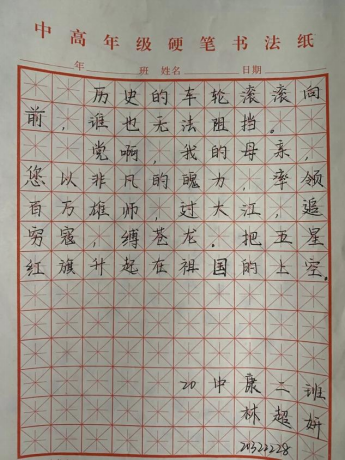 中高年级硬笔书法纸
年 班 姓名 日期
历史的车轮滚滚向
前，谁也无法阻挡。
党啊，我的母亲，
您以非凡的魄力，率领
百万雄师，过大江，追
穷寇，缚苍龙．把五星
红旗升起在祖国的上空。
20中康二班
林超妍